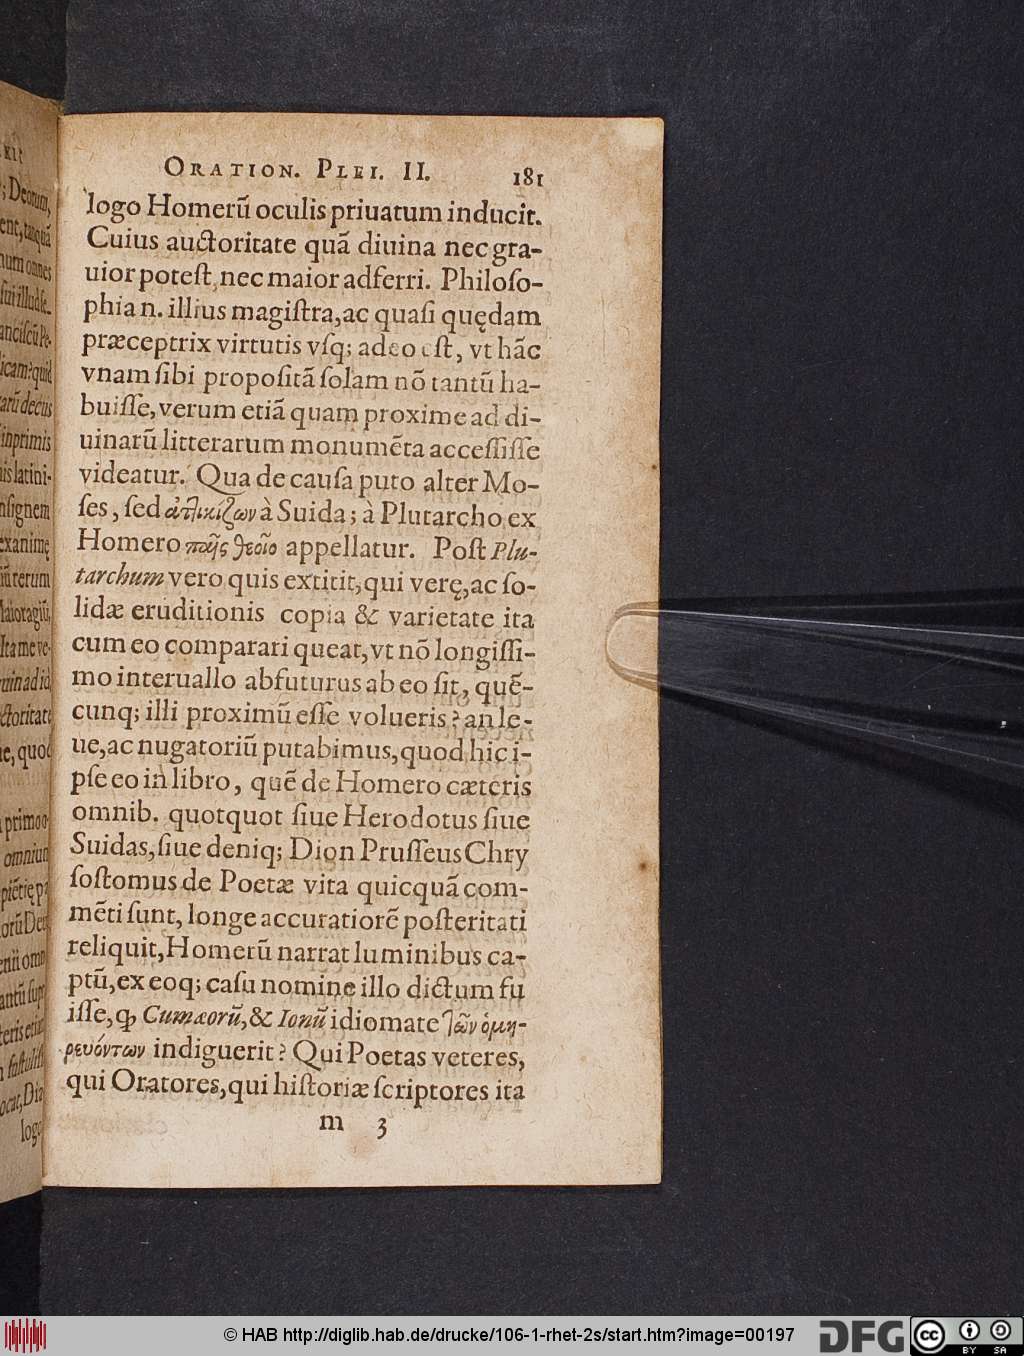 ORATION. PLEI. II. 181
logo Homerū oculis priuatum inducit.
Cuius auctoritate quā diuina nec gra-
uior poteſt, nec maior adferri. Philoſo-
phia n. illius magiſtra, ac quaſi quędam
præceptrix virtutis vſq; adeo eſt, vt hāc
vnam ſibi propoſitā ſolam nō tantū ha-
buiſſe, verum etiā quam proxime ad di-
uinarū litterarum monumēta acceſſiſſe
videatur. Qua de cauſa puto alter Mo-
ſes, ſed ἀτλικίζων à Suida; à Plutarcho ex
Homero θεοῖο appellatur. Poſt Plu-
tarchum vero quis extitit, qui verę, ac ſo-
lidæ eruditionis copia & varietate ita
cum eo comparari queat, vt nō longiſſi-
mo interuallo abfuturus ab eo ſit, quē-
cunq; illi proximū eſſe volueris? an le-
ue, ac nugatoriū putabimus, quod hic i-
pſe eo in libro, quē de Homero cæteris
omnib. quotquot ſiue Herodotus ſiue
Suidas, ſiue deniq; Dion Pruſſeus Chry
ſoſtomus de Poetæ vita quicquā com-
mēti ſunt, longe accuratiorē poſteritati
reliquit, Homerū narrat luminibus ca-
ptū, ex eoq; caſu nomine illo dictum fu
iſſe, ꝙ Cumæorū, & Ionū idiomate τῶν ὁμη-
ρευόντων indiguerit? Qui Poetas veteres,
qui Oratores, qui hiſtoriæ ſcriptores ita
m 3
© HAB http://diglib.hab.de/drucke/106-1-rhet-2s/start.htm?image=00197
DFG
cc
BY SA